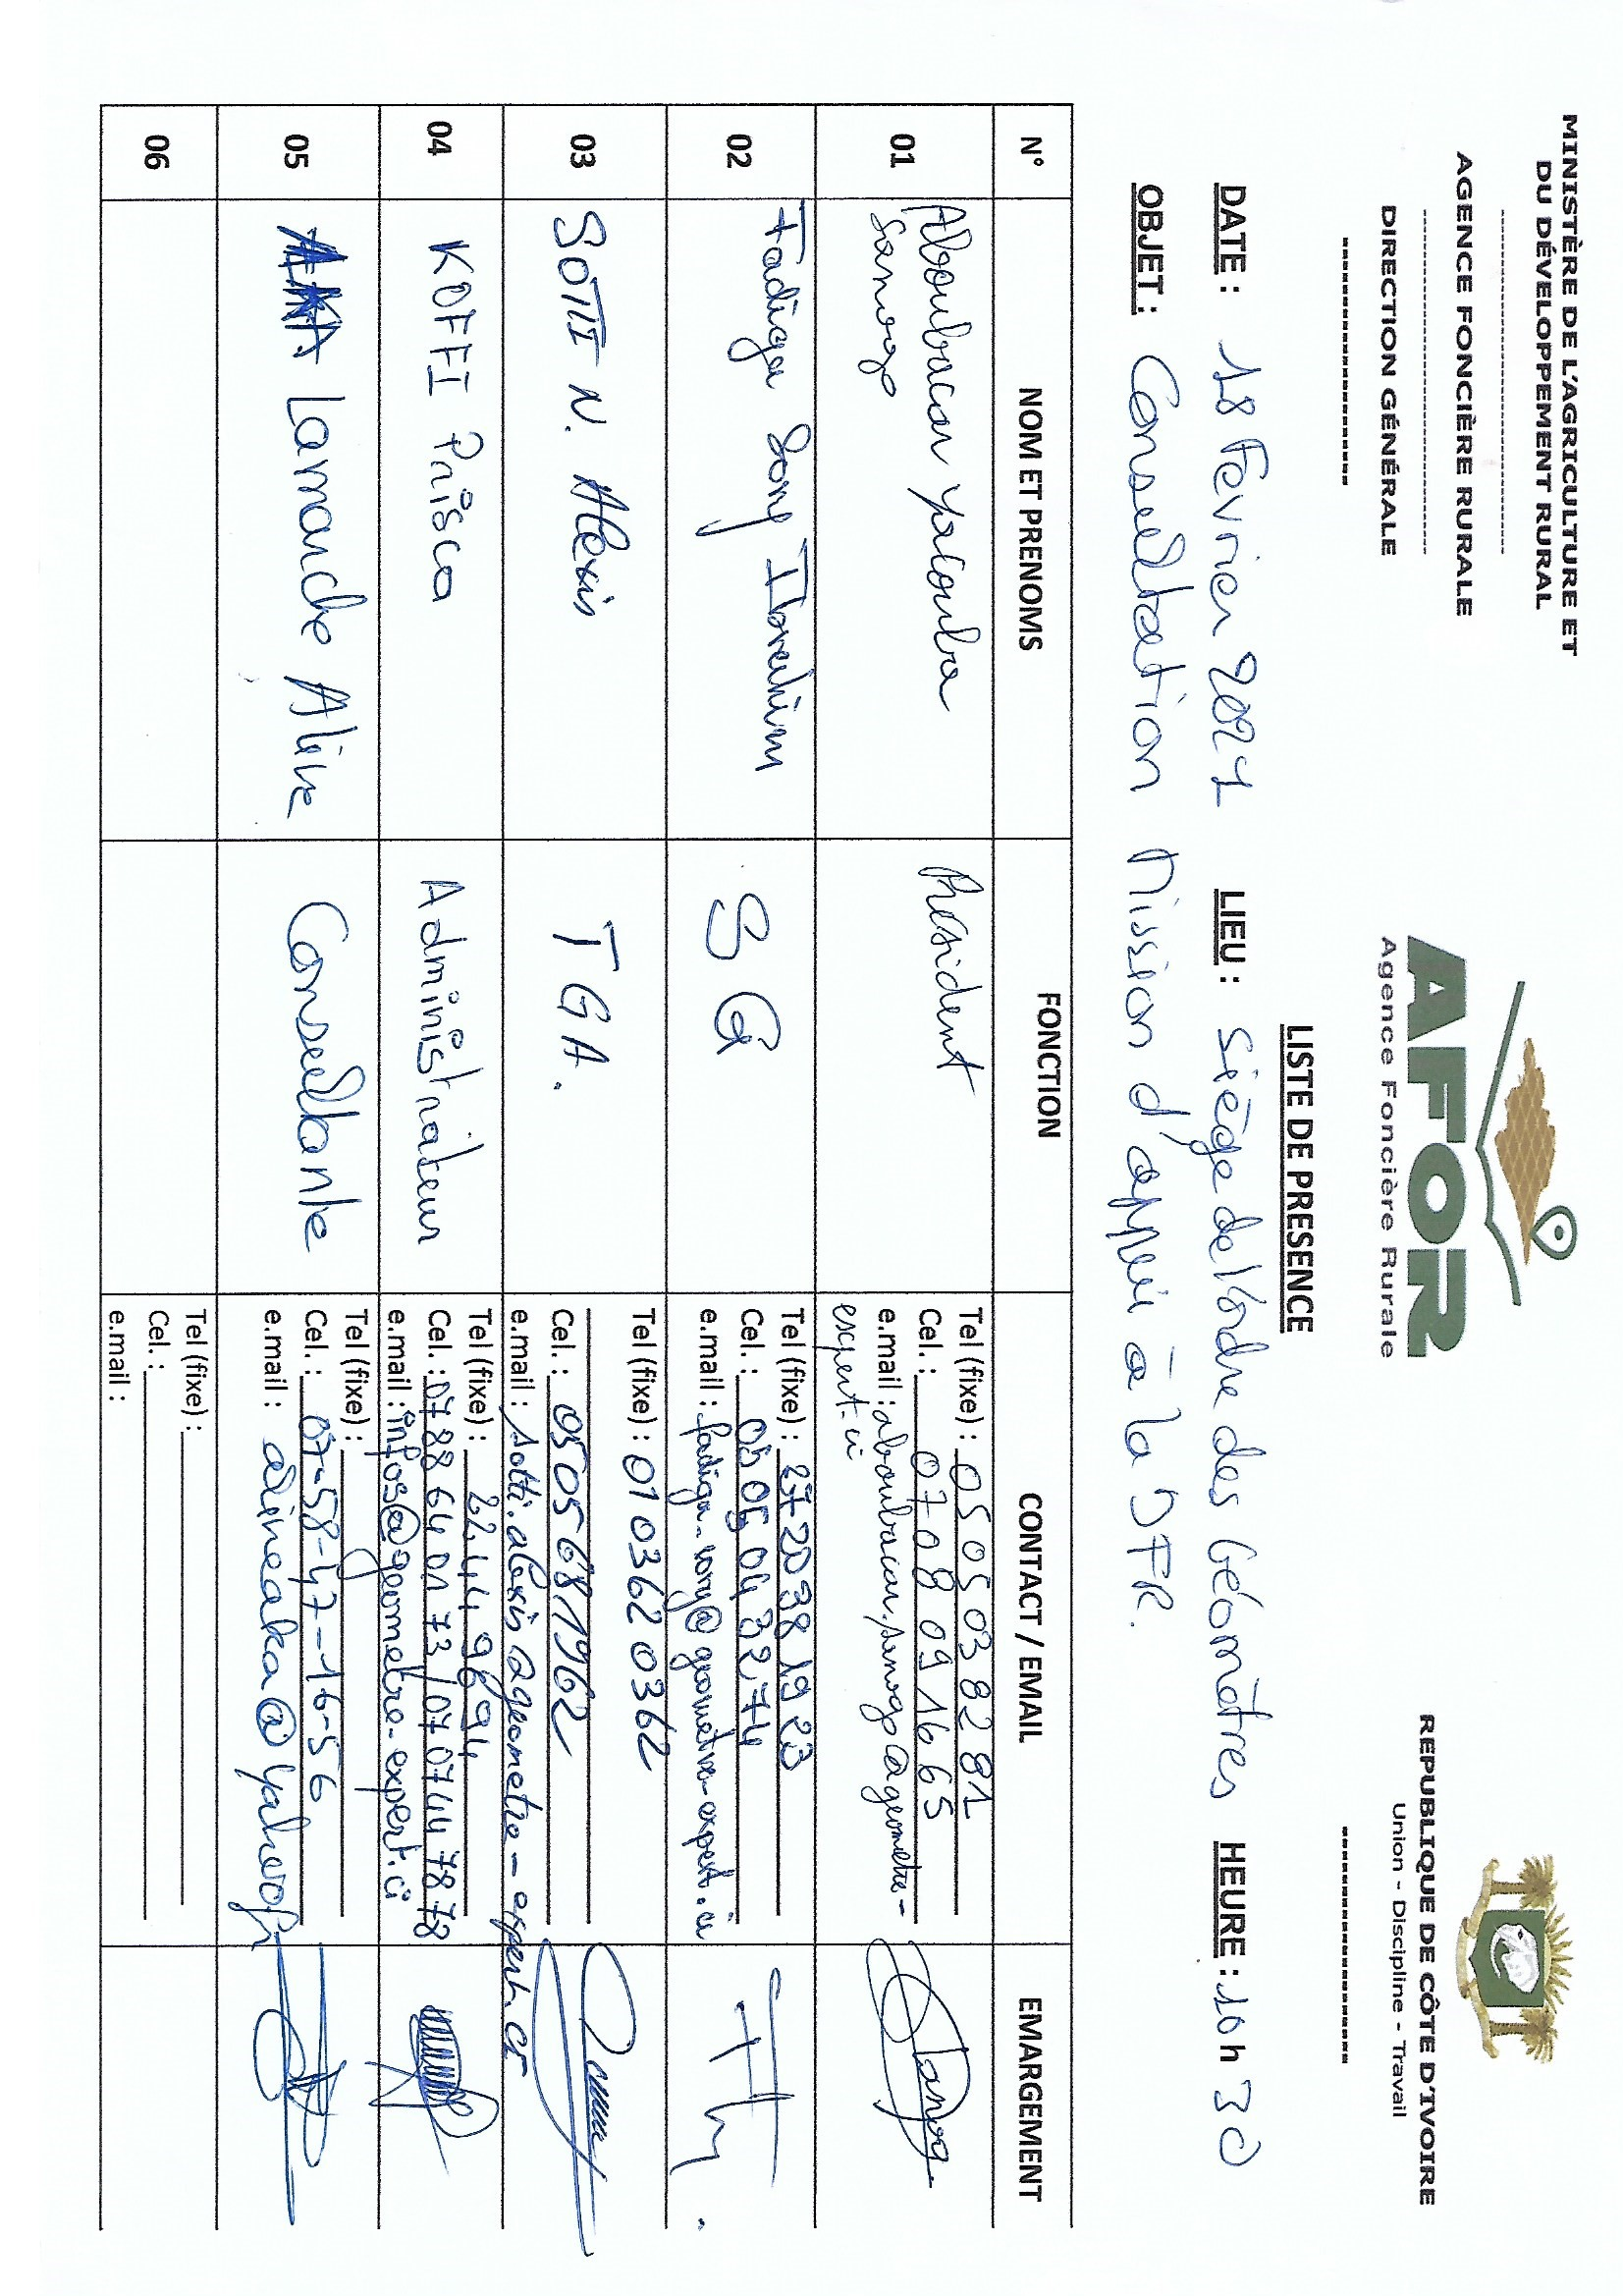 MINISTÈRE DE L'AGRICULTURE ET
DU DÉVELOPPEMENT RURAL
AGENCE FONCIÈRE RURALE
DIRECTION GÉNÉRALE
AFOR
Agence Foncière Rurale
REPUBLIQUE DE CÔTE D'IVOIRE
Union - Discipline - Travail
LISTE DE PRESENCE
DATE : 18 Février 2021 LIEU : Siège de l'ordre des Géomètres HEURE : 10 h 30
OBJET : Consultation Mission d'appui à la DFR.
N° NOM ET PRENOMS FONCTION CONTACT / EMAIL EMARGEMENT
01 Aboubacar Yacouba
Sanogo
Président
Tel (fixe) : 05 05 03 82 81
Cel. : 07 08 09 16 65
e.mail : aboubacar.sanogo@geometre-
expert.ci
02 Fadiga Sory Ibrahim
SG
Tel (fixe) : 27 20 38 19 23
Cel. : 05 05 04 32 74
e.mail : fadiga-sory@geometre-expert.ci
03 SOTTI N. Alexis
TGA.
Tel (fixe) : 01 0362 0362
Cel. : 05 05 68 1962
e.mail : sotti.alexis@geometre-expert.ci
04 KOFFI Prisca
Administrateur
Tel (fixe) : 22 44 96 94
Cel. : 07 88 64 01 73 / 07 07 44 78 78
e.mail : infos@geometre-expert.ci
05 Lamande Aline
Consultante
Tel (fixe) :
Cel. : 07-58-47-16-56
e.mail : alineaka@yahoo.fr
06
Tel (fixe) :
Cel. :
e.mail :